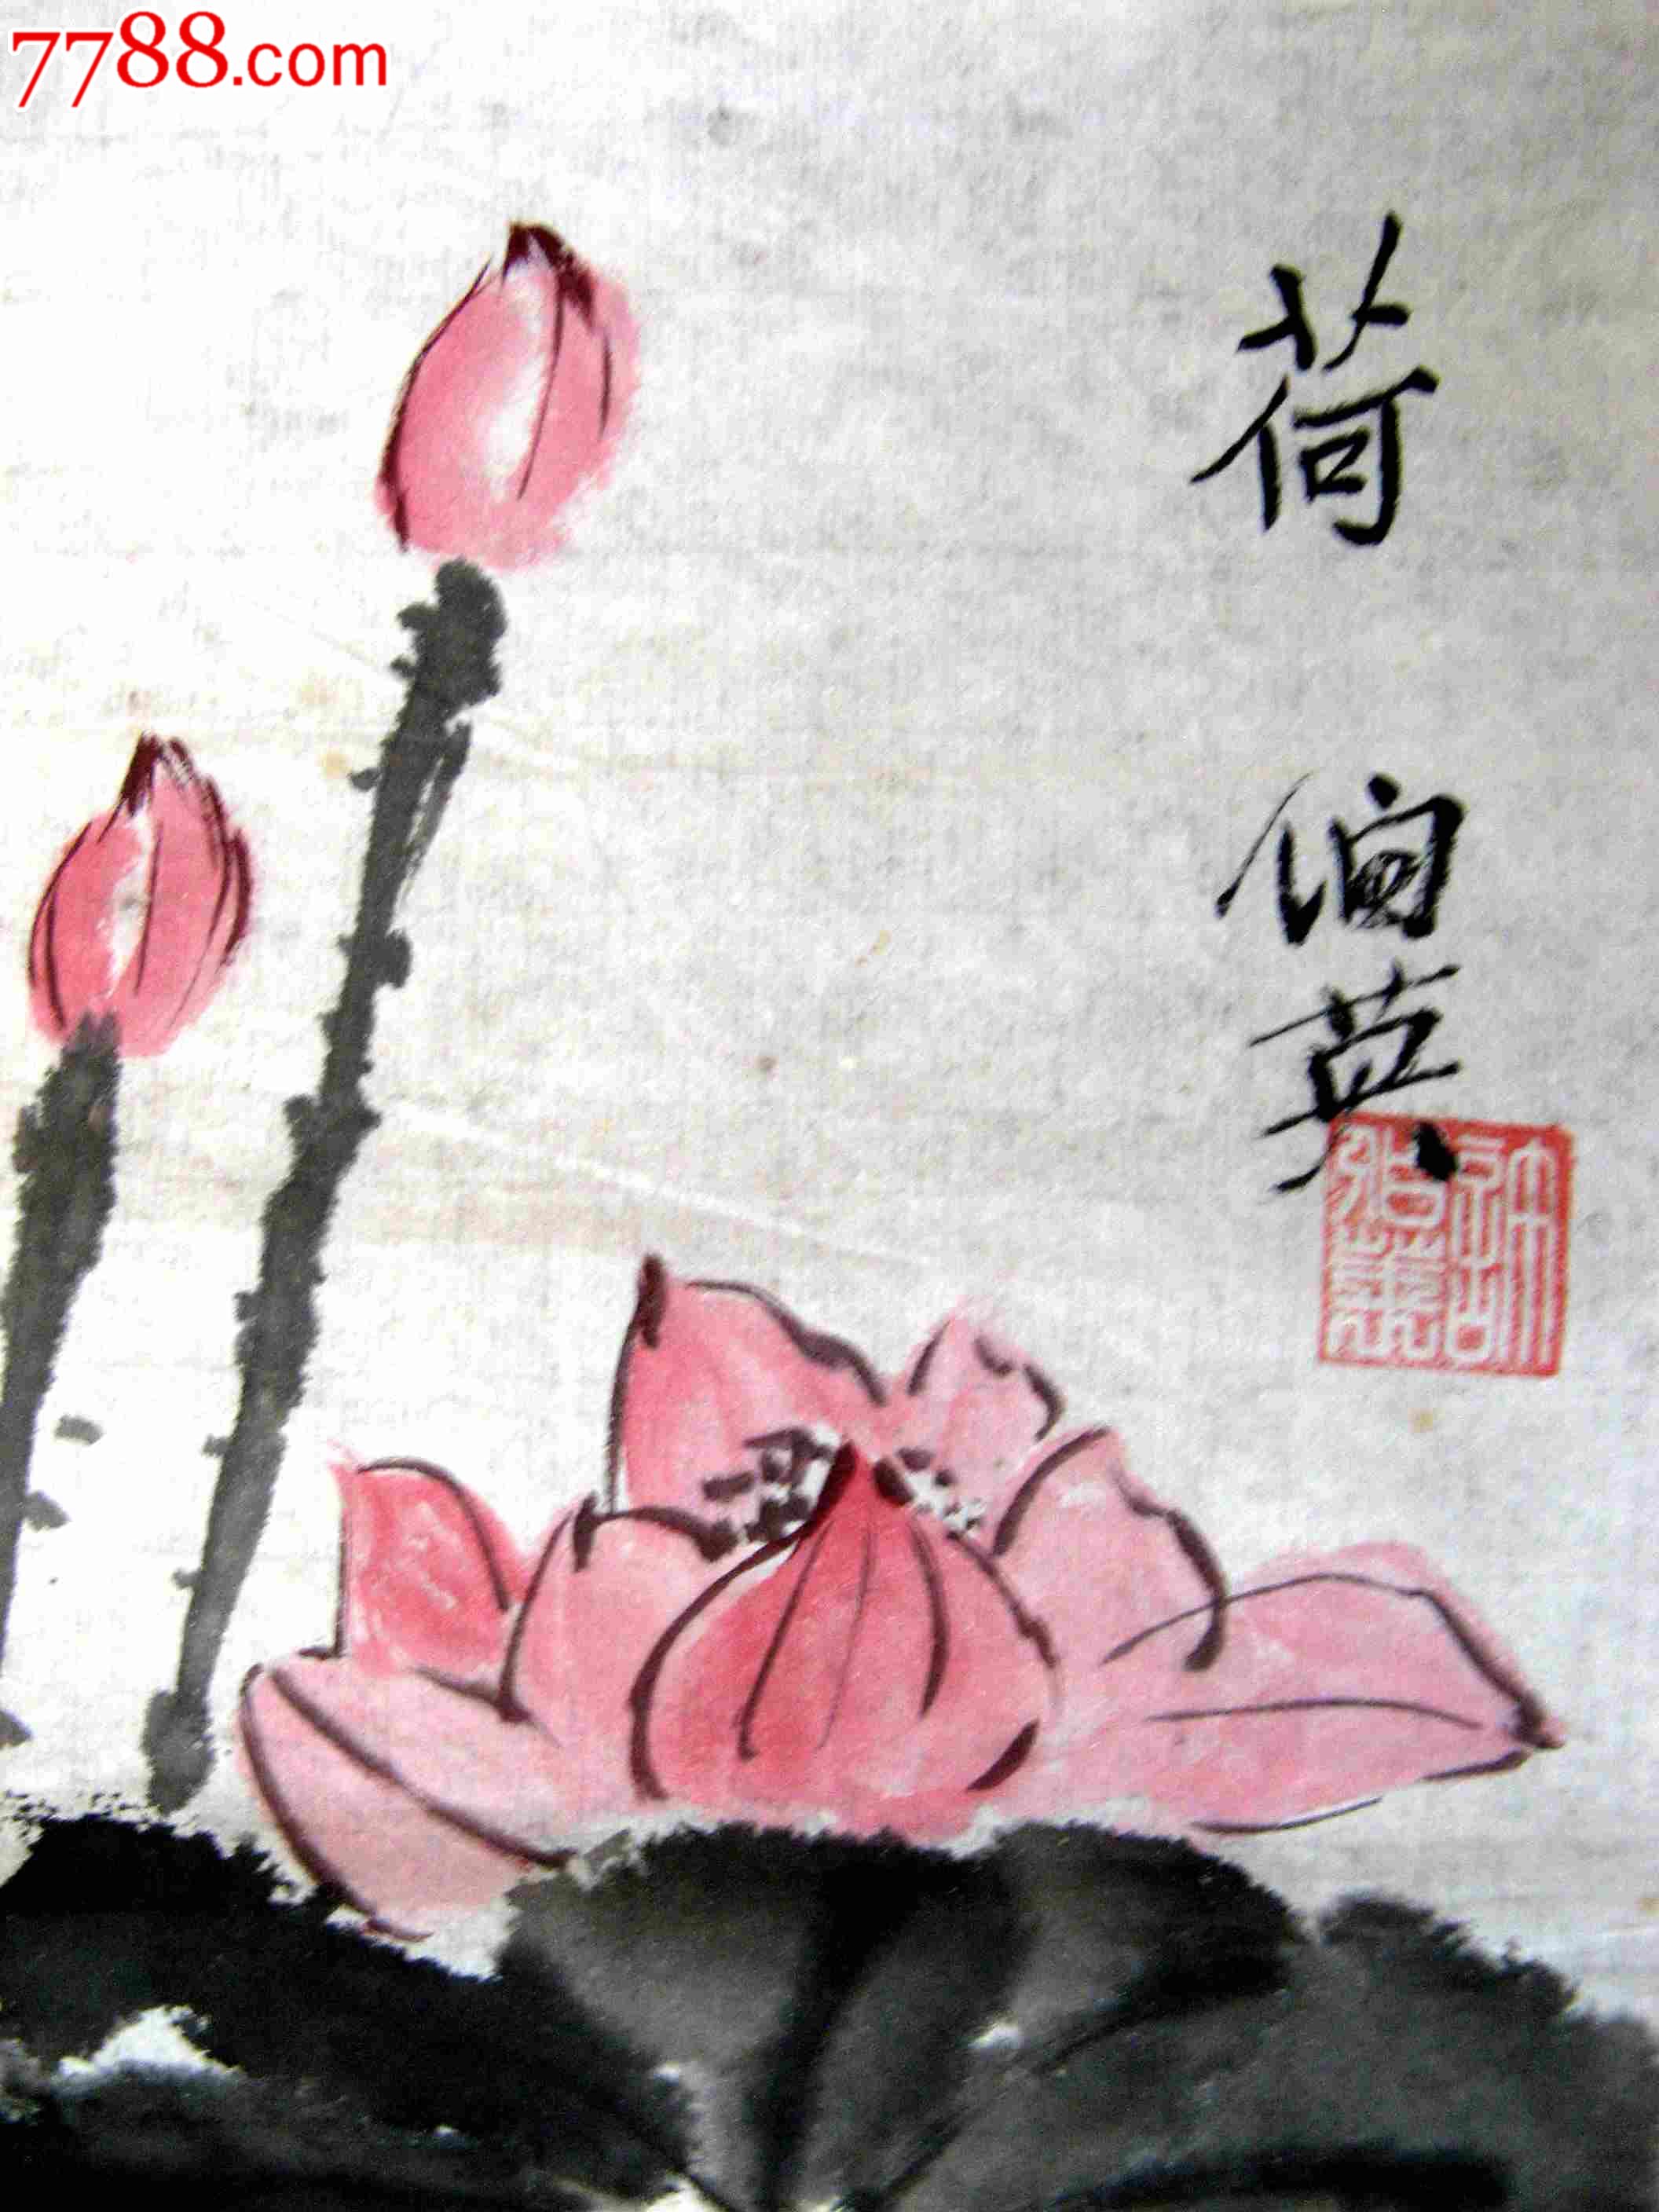 7788.com
荷
伯英